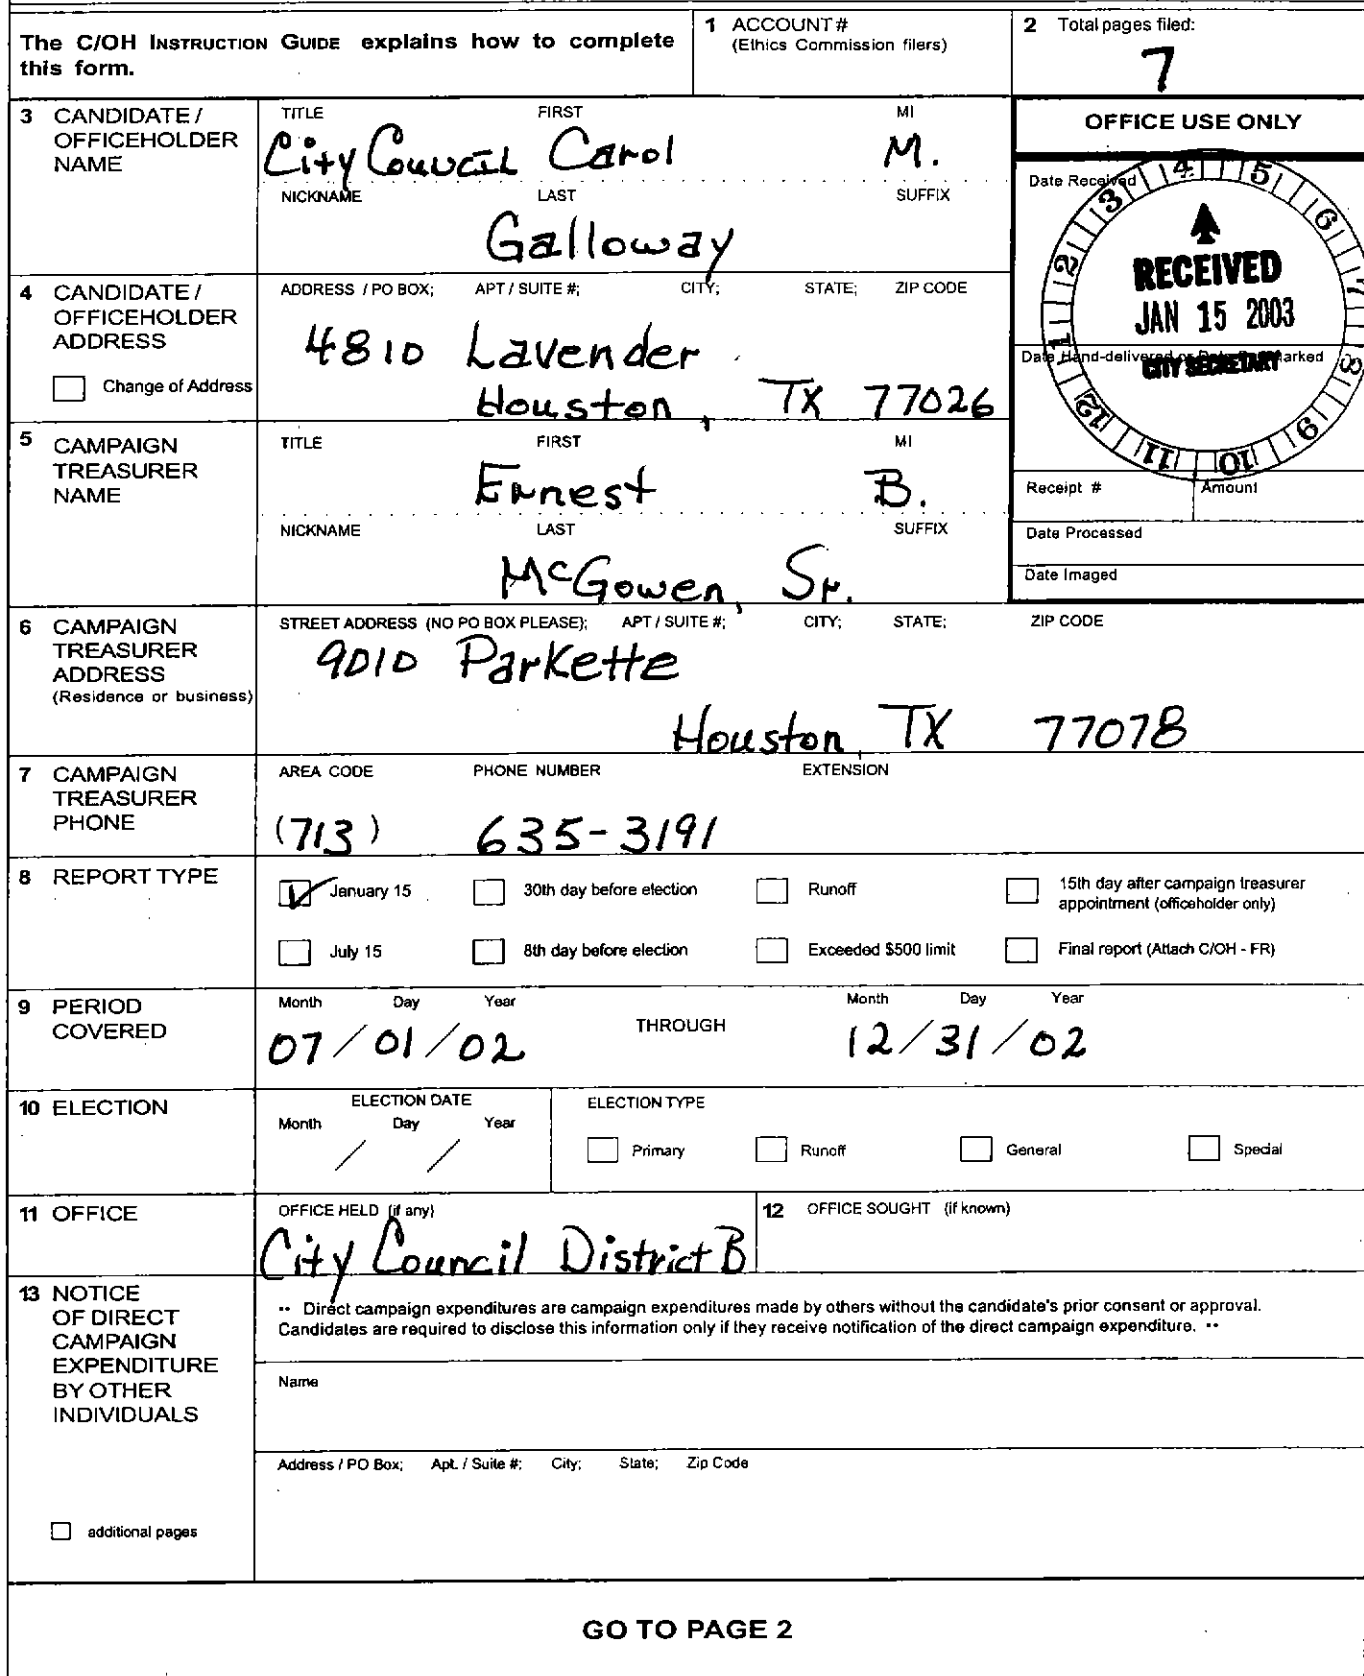 The C/OH INSTRUCTION GUIDE explains how to complete this form.
1 ACCOUNT #
(Ethics Commission filers)
2 Total pages filed:
7
3 CANDIDATE / OFFICEHOLDER NAME
TITLE FIRST MI
City Council Carol M.
NICKNAME LAST SUFFIX
Galloway
OFFICE USE ONLY
Date Received
1 2 3 4 5 6 7 8 9 10 11 12
RECEIVED
JAN 15 2003
CITY SECRETARY
Date Hand-delivered or Date Postmarked
Receipt # Amount
Date Processed
Date Imaged
4 CANDIDATE / OFFICEHOLDER ADDRESS
Change of Address
ADDRESS / PO BOX; APT / SUITE #; CITY; STATE; ZIP CODE
4810 Lavender
Houston, TX 77026
5 CAMPAIGN TREASURER NAME
TITLE FIRST MI
Ernest B.
NICKNAME LAST SUFFIX
McGowen, Sr.
6 CAMPAIGN TREASURER ADDRESS
(Residence or business)
STREET ADDRESS (NO PO BOX PLEASE); APT / SUITE #; CITY; STATE; ZIP CODE
9010 Parkette
Houston, TX 77078
7 CAMPAIGN TREASURER PHONE
AREA CODE PHONE NUMBER EXTENSION
(713) 635-3191
8 REPORT TYPE
January 15 30th day before election Runoff 15th day after campaign treasurer appointment (officeholder only)
July 15 8th day before election Exceeded $500 limit Final report (Attach C/OH - FR)
9 PERIOD COVERED
Month Day Year THROUGH Month Day Year
07/01/02 12/31/02
10 ELECTION
ELECTION DATE
Month Day Year
/ /
ELECTION TYPE
Primary Runoff General Special
11 OFFICE
OFFICE HELD (if any)
City Council District B
12 OFFICE SOUGHT (if known)
13 NOTICE OF DIRECT CAMPAIGN EXPENDITURE BY OTHER INDIVIDUALS
•• Direct campaign expenditures are campaign expenditures made by others without the candidate's prior consent or approval.
Candidates are required to disclose this information only if they receive notification of the direct campaign expenditure. ••
Name
Address / PO Box; Apt. / Suite #; City; State; Zip Code
additional pages
GO TO PAGE 2